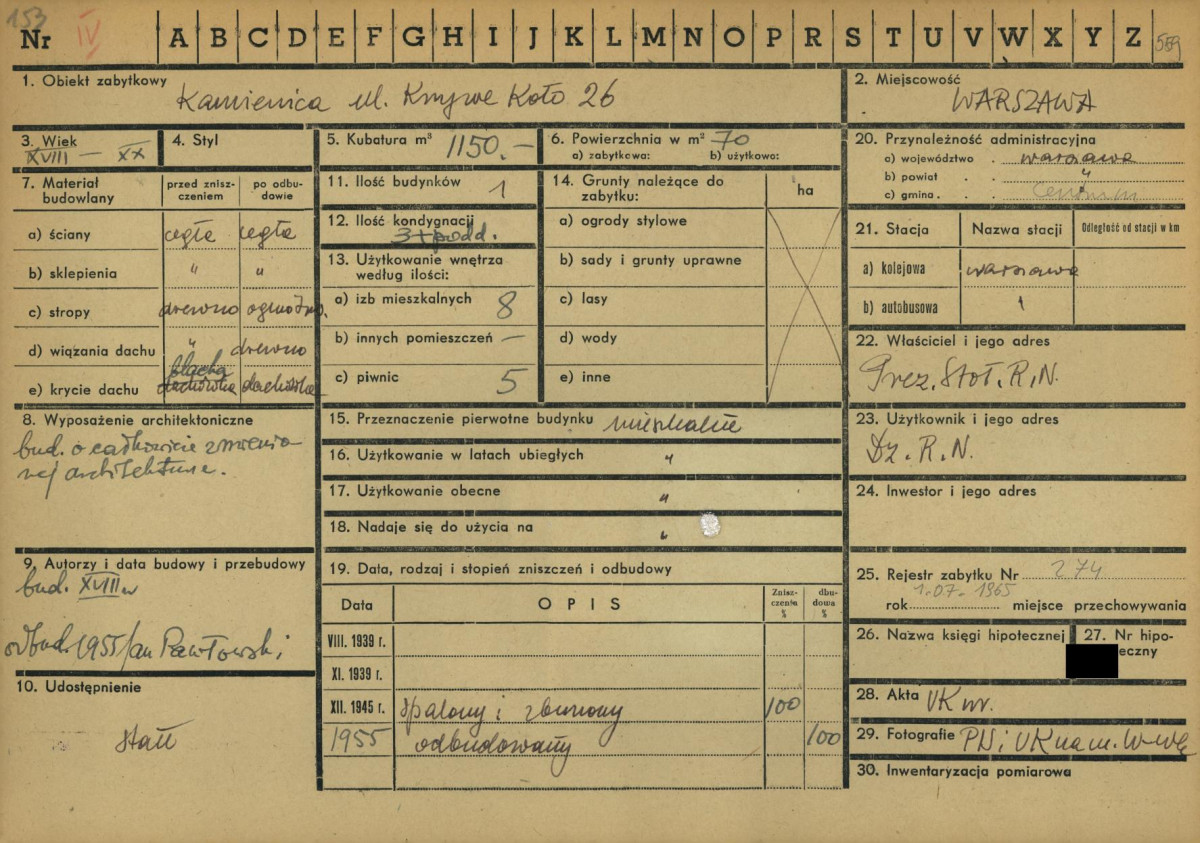 153
Nr IV A B C D E F G H I J K L M N O P R S T U V W X Y Z 559
1. Obiekt zabytkowy
Kamienica ul. Krzywe Koło 26
2. Miejscowość
WARSZAWA
3. Wiek
XVIII — XX
4. Styl
5. Kubatura m³ 1150.-
6. Powierzchnia w m² 70
a) zabytkowa: b) użytkowo:
20. Przynależność administracyjna
a) województwo . warszawa
b) powiat . . "
c) gmina . . .
7. Materiał budowlany
przed znisz-czeniem
po odbu-dowie
a) ściany cegła cegła
b) sklepienia " "
c) stropy drewno ogniotrw.
d) wiązania dachu " drewno
blacha
e) krycie dachu dachówka dachówka
11. Ilość budynków 1
12. Ilość kondygnacji
3+podd.
13. Użytkowanie wnętrza
według ilości:
a) izb mieszkalnych 8
b) innych pomieszczeń —
c) piwnic 5
14. Grunty należące do
zabytku:
ha
a) ogrody stylowe
b) sady i grunty uprawne
c) lasy
d) wody
e) inne
21. Stacja Nazwa stacji Odległość od stacji w km
a) kolejowa warszawa
b) autobusowa "
22. Właściciel i jego adres
Prez. Stoł. R. N.
8. Wyposażenie architektoniczne
bud. o całkowicie zmienio-
nej architekturze.
15. Przeznaczenie pierwotne budynku mieszkalne
16. Użytkowanie w latach ubiegłych "
17. Użytkowanie obecne "
18. Nadaje się do użycia na "
23. Użytkownik i jego adres
Dz. R. N.
24. Inwestor i jego adres
9. Autorzy i data budowy i przebudowy
bud. XVIII w
odbud. 1955 Jan Pawłowski
10. Udostępnienie
19. Data, rodzaj i stopień zniszczeń i odbudowy
Data OPIS Znisz-czenia % dbu-dowa %
VIII. 1939 r.
XI. 1939 r.
XII. 1945 r. spalony i zburzony 100
1955 odbudowany 100
25. Rejestr zabytku Nr 274
1.07.1965
rok miejsce przechowywania
26. Nazwa księgi hipotecznej
27. Nr hipo-
eczny
28. Akta UK nr.
29. Fotografie PIS i UK na m. W-wę
30. Inwentaryzacja pomiarowa